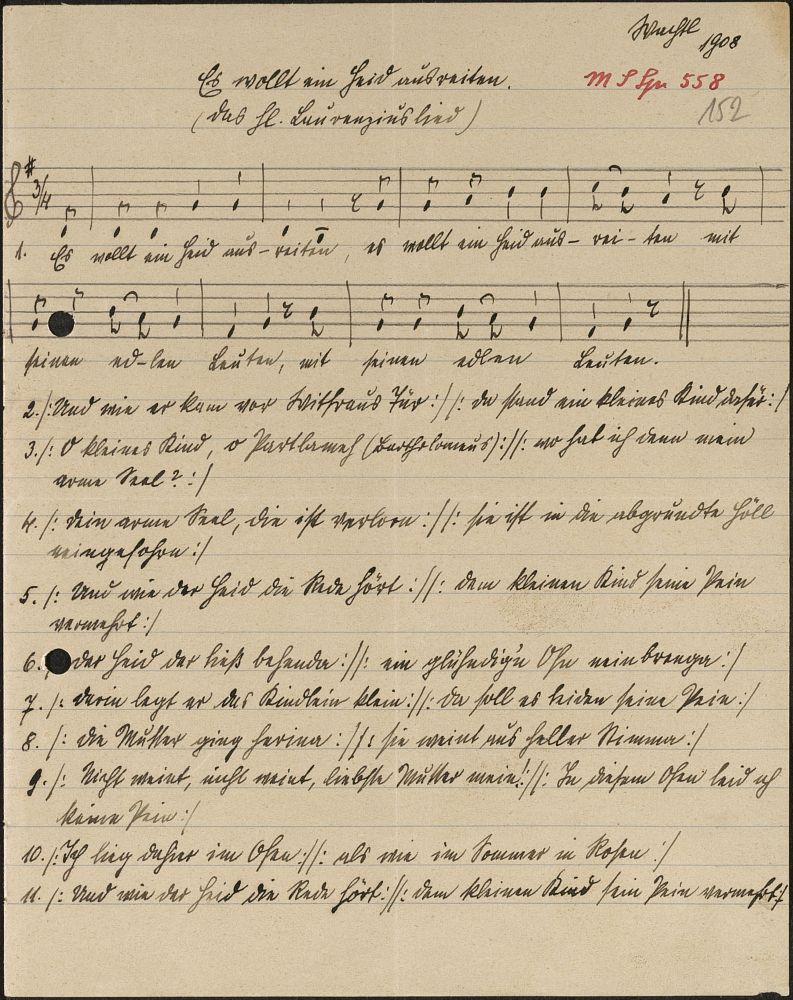 Wachtl
1908
Es wollt ein Heid ausreiten.
M S Spr 558
(Das hl. Laurenziuslied)
152
3/4
1. Es wollt ein Heid aus-reiten, es wollt ein Heid aus-rei-ten mit
seinen ed-len Leuten, mit seinen edlen Leuten.
2. /: Und wie er kam vor Tür :/ /: da stand ein kleines Kind dafür: /
3. /: O kleines Kind, o Partlameh (Bartholomeus) :/ /: wo hat ich denn mein
arme Seel? :/
4. /: Dein arme Seel, die ist verlorn :/ /: sie ist in die abgrundte Höll
neingefohrn :/
5. /: Und wie der Heid die Rede hört :/ /: dem kleinen Kind seine Pein
vermehrt :/
6. der Heid der ließ behenda :/ /: ein glühndig'n Ofn neinbrenga :/
7. /: darin legt er das Kindlein klein :/ /: da soll es leiden seine Pein :/
8. /: die Mutter ging herina :/ /: sie weint aus heller Stimma :/
9. /: Nicht weint, nicht weint, liebste Mutter mein! :/ /: In diesem Ofen leid ich
keine Pein :/
10. /: Ich lieg dahier im Ofen :/ /: als wie im Sommer in Rosen :/
11. /: Und wie der Heid die Rede hört :/ /: dem kleinen Kind sein Pein vermehrt :/